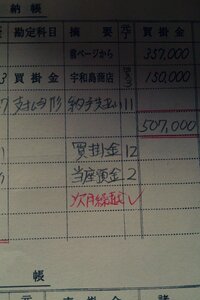 納 帳
勘定科目 摘要 元丁 買掛金
前ページから 357,000
3 買掛金 宇和島商店 150,000
支払手形 約手支払 11
507,000
買掛金 12
当座預金 2
次月繰越 ✓
帳